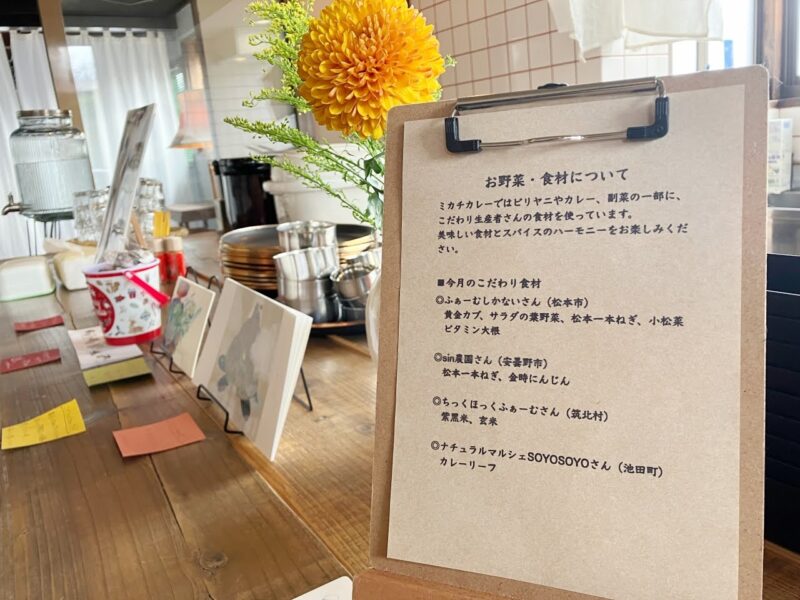 お野菜・食材について
ミカチカレーではビリヤニやカレー、副菜の一部に、
こだわり生産者さんの食材を使っています。
美味しい食材とスパイスのハーモニーをお楽しみくだ
さい。
■今月のこだわり食材
◎ふぁーむしかないさん（松本市）
黄金カブ、サラダの葉野菜、松本一本ねぎ、小松菜
ビタミン大根
◎sin農園さん（安曇野市）
松本一本ねぎ、金時にんじん
◎ちっくほっくふぁーむさん（筑北村）
紫黒米、玄米
◎ナチュラルマルシェSOYOSOYOさん（池田町）
カレーリーフ